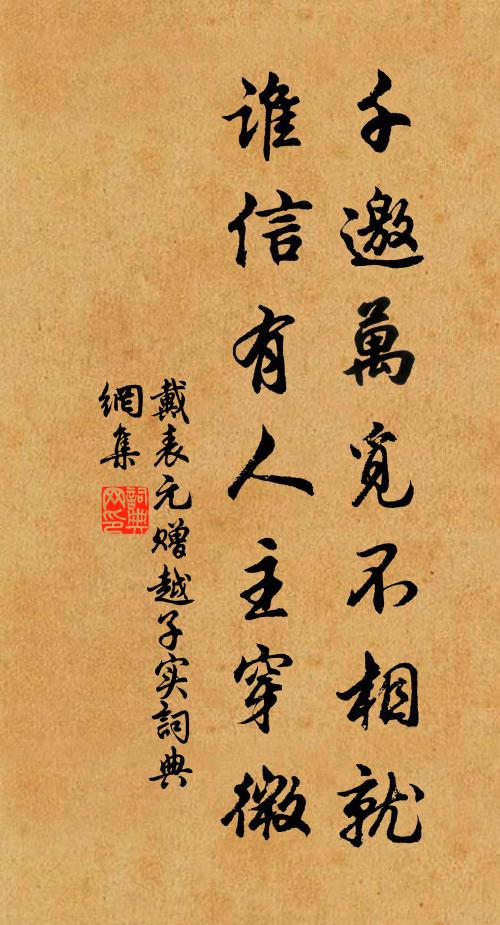 千邀萬覓不相就
誰信有人主穿微
戴表元赠越子实詞典
網集
詞典網印